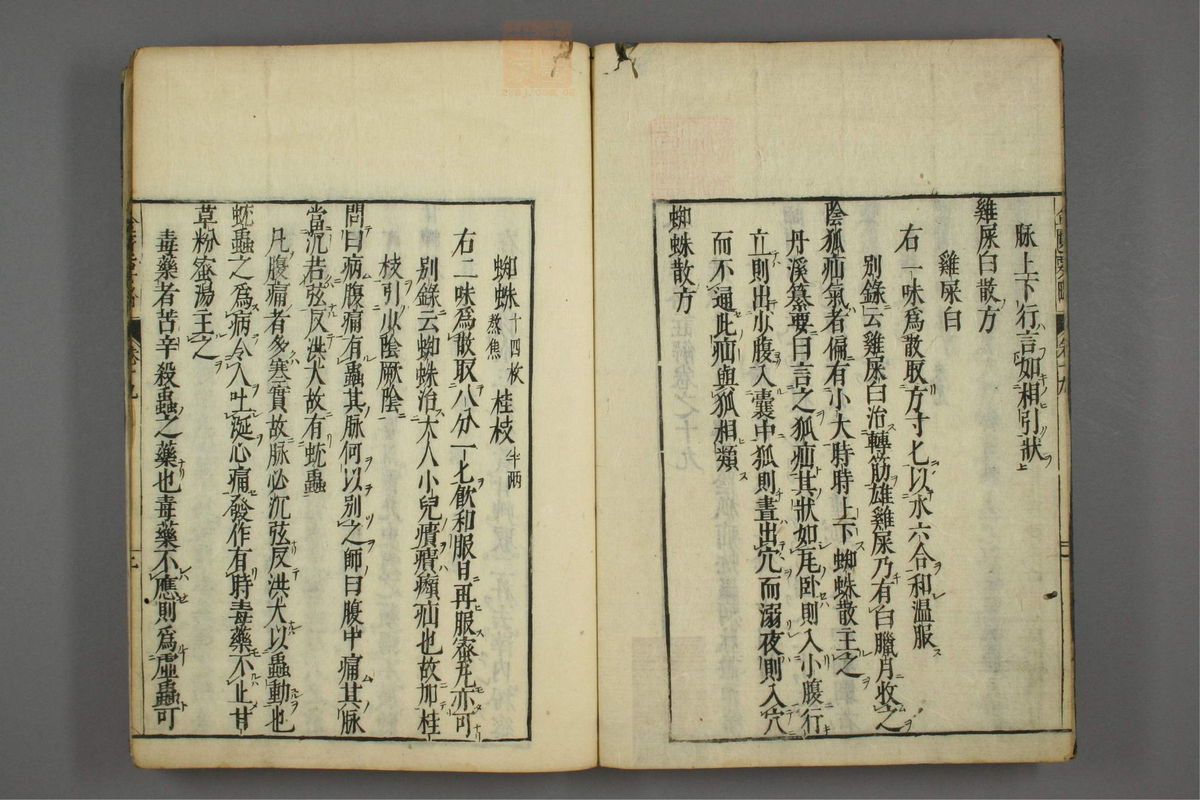 脉上下行言如相引狀
雞屎白散方
雞屎白
右一味爲散取方寸匕以水六合和温服
別錄云雞屎白治轉筋雄雞屎乃有白臘月收之
陰狐疝氣者偏有小大時時上下蜘蛛散主之
丹溪纂要曰言之狐疝其狀如瓦卧則入小腹行
立則出小腹入囊中狐則晝出穴而溺夜則入穴
而不通此疝與狐相類
蜘蛛散方
蜘蛛十四枚熬焦 桂枝半兩
右二味爲散取八分一匕飲和服日再服蜜丸亦可
別錄云蜘蛛治大人小兒㿉㿉癩疝也故加桂
枝引少陰厥陰
問曰病腹痛有蟲其脉何以別之師曰腹中痛其脉
當沉若弦反洪大故有蚘蟲
凡腹痛者多寒實故脉必沉弦反洪大以蟲動也
蚘蟲之爲病令人吐涎心痛發作有時毒藥不止甘
草粉蜜湯主之
毒藥者苦辛殺蟲之藥也毒藥不應則爲虛蟲可